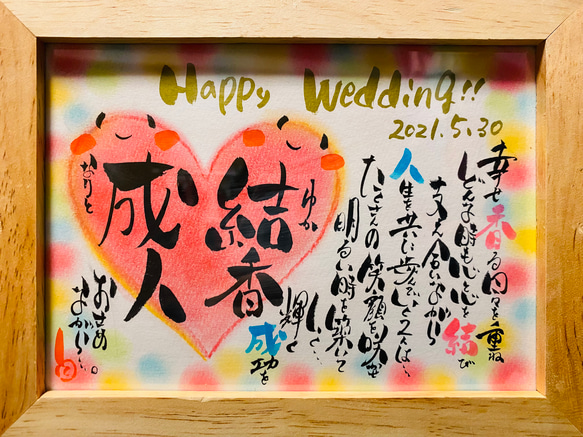 Happy Wedding!!
2021.5.30
幸せ香る日々を重ね
どんな時も心と心を結び
支え合いながら
人生を共に歩んでいく二人は…
たくさんの笑顔を咲かせ
明るい時を築いて
いく…
輝く成功を
結香
ゆか
成人
なりと
おさめ
ながら…。